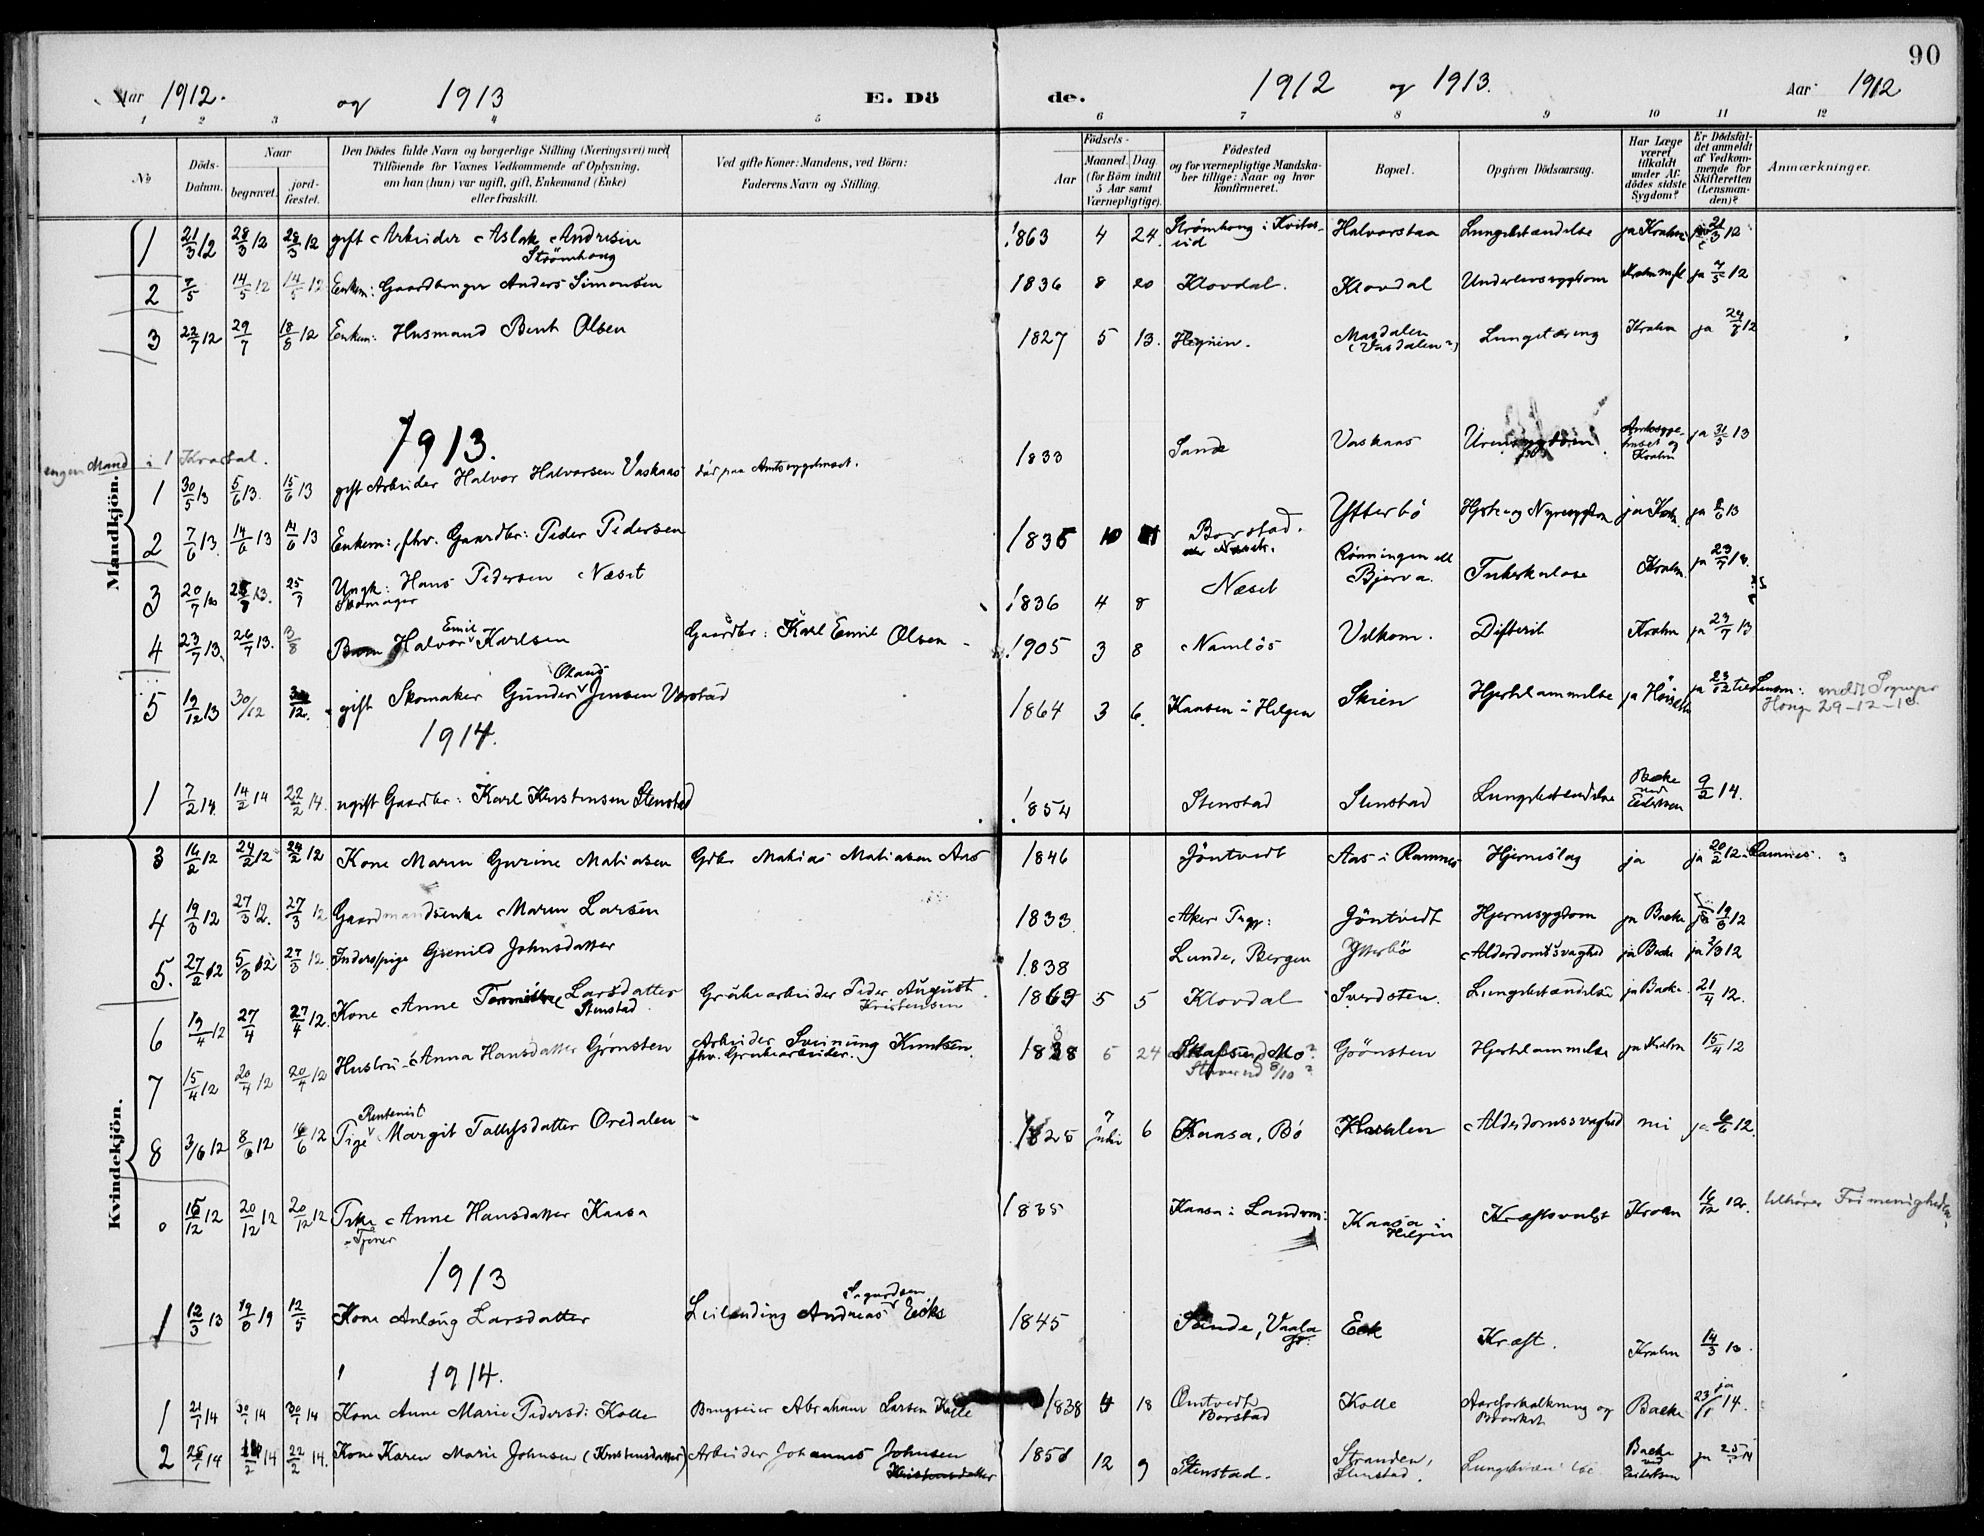 90
Aar 1912. og 1913 E. Dö de. 1912 og 1913. Aar 1912
1 2 3 4 5 6 7 8 9 10 11 12
No
Döds-Datum.
Naar
begravet.
jord-fæstet.
Den Dödes fulde Navn og borgerlige Stilling (Næringsvei) med Tilföiende for Voxnes Vedkommende af Oplysning, om han (hun) var ugift, gift, Enkemand (Enke) eller fraskilt.
Ved gifte Koner: Mandens, ved Börn: Faderens Navn og Stilling.
Födsels-
Aar
Maaned.
Dag.
(for Börn indtil 5 Aar samt Værnepligtige).
Födested og for værnepligtige Mandskaber tillige: Naar og hvor konfirmeret.
Bopæl.
Opgiven Dödsaarsag.
Har Læge været tilkaldt under Afdödes sidste Sygdom?
Er Dödsfaldet anmeldt af Vedkommende for Skifteretten (Lensmanden)?
Anmærkninger.
Mandkjön.
1 21/3 12 28/3 12 28/3 12 gift Arbeider Aslak Andresen Strömhaug 1863 4 24. Strømhaug i Kviteseid Halvorstaa Lungebetændelse ja Krahn 21/3 12
2 7/5 14/5 12 14/5 12 Enkem: Gaardbruger Anders Simonsen 1836 8 20 Klovdal. Klovdal Underlivssygdom Krahn mfl ja 7/5 12
3 22/7 12 29/7 18/8 12 Enkem: Husmand Bent Olsen 1827 5 13. Hegnin. (Vasdalen?) Lungetæring Krahn ja 24/8 12
1913.
ingen Mand i 1 Kvartal.
1 30/5 13 5/6 13. 15/6 13 gift Arbeider Halvor Halvorsen Vaskaas död paa Amtssygehuset. 1833 Sande Vaskaas Amtssygehuset og Krahn ja 31/5 13
2 7/6 13 14/6 13 14/6 13 Enkem: fhv. Gaardbr: Peder Pedersen 1835 10 Borstad. Ytterbö Hjerte og Nyresygdom ja Krahn ja 8/6 13
3 20/7 13 25/7 13. 25/7 Ungk: Hans Pedersen Næset Skomager 1836 4 8 Næset Rönningen ell Bjerva. Tuberkulose Krahn. ja 23/7 13.
4 23/7 13. 26/7 13. 3/8 Barn Halvor Emil Karlsen Gaardbr: Karl Emil Olsen 1905 3 8 Namlös Velkom. Difterit Krahn ja 23/7 13
5 19/12 13 30/12 gift Skomaker Gunder Olaus Jensen Vorstad 1864 3 6. Kaasen i Helgen Skien Hjertelammelse ja ja 23/12 til Lensm: meldt Sogneprest Houge 29-12-13.
1914.
1 7/2 14. 14/2 14 22/2 14. ugift Gaardbr: Karl Kristensen Stenstad 1854 Stenstad Stenstad Lungebetændelse Backe 9/2 14.
Kvindekjön.
3 16/2 12 24/2 12 24/2 12 Kone Maren Gurine Matiasen Gdbr Matias Matiasen Aas 1846 Jöntvedt Aas i Ramnes Hjerneslag ja ja 20/2 12. Ramnes.
4 19/3 12 27/3 12. 27/3 12 Gaardmandsenke Maren Larsen 1833 Aker Jöntvedt Hjernesygdom ja Backe 19/3 12
5. 27/2 12 5/3 12 27/3 12. Inderspige Gunild Johnsdatter 1838 Lunde, Bergen Ytterbö Alderdomssvaghed ja Backe ja 2/3 12
6 19/4 12 27/4 27/4 12. Kone Anne Larsdatter Stenstad Grubearbeider Peder August Kristensen 1869 5 5 Klovdal Sverdsten. Lungebetændelse ja Backe 21/4 12.
7 15/4 12 20/4 12 20/4 12 Hustru Anna Hansdatter Grönsten Arbeider Sveinung Knutsen fhv. Grubearbeider. 1838 5 24 Staverud 8/10? Gönsten Hjertelammelse ja Krahn 15/4 12
8 3/6 12 8/6 12 16/6 12 Pige Rentenist Margit Tallefsdatter Oredalen 1825 juli 6 Kaasa, Bö Alderdomssvaghed nei ja 6/6 12.
15/12 12 20/12 12 20/12 12 Pike Anne Hansdatter Kaasa Tjener 1835 Kaasa i Landsm: Kaasa i Helgen Kræftsvulst Krahn 16/12 12. tilhörer Frimenigheden.
1913
1 12/3 13 19/3 12/5 Kone Anlaug Larsdatter Leilending Andreas Sigurdsen Eiks 1845 Sande, Vaala Eek Kræft. Krahn 14/3 13.
1914.
1 21/1 14 30/1 14 30/1 14 Kone Anne Marie Pedersd: Kolle Brugseier Abraham Larsen Kolle 1838 4 18 Omtvedt Borstad Kolle Aareforkalkning og Backe ja 23/1 14.
2 14 14 22/2 14. Kone Karen Marie Johnsen (Kristensdatter) Arbeider Johannes Johnsen 1851 12 9 Stenstad. Stranden, Stenstad. Backe ja 25/ 14